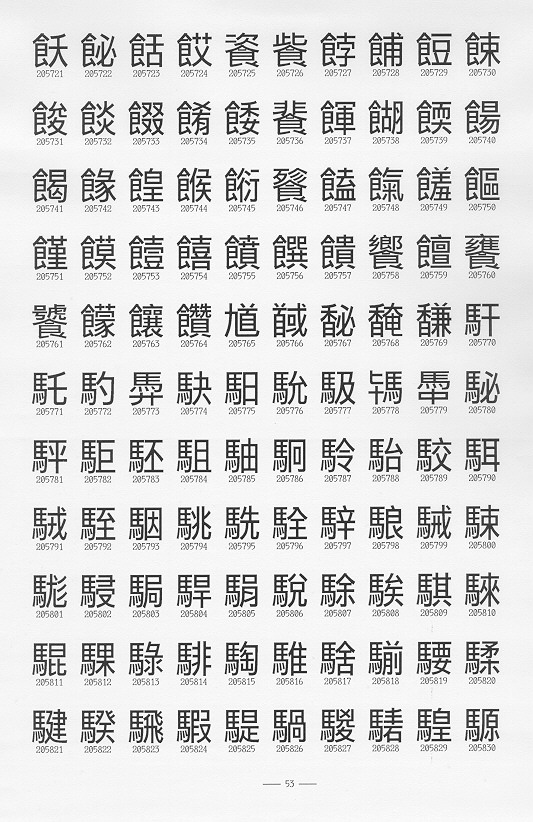 飫 飶 餂 餀 餈 飺 餑 餔 餖 餗
205721 205722 205723 205724 205725 205726 205727 205728 205729 205730
餕 餤 餟 餚 餧 餥 餫 餬 餪 餳
205731 205732 205733 205734 205735 205736 205737 205738 205739 205740
餲 餯 餭 餱 餰 饁 餼 饈 饇
205741 205742 205743 205744 205745 205746 205747 205748 205749 205750
饉 饃 饐 饎 饙 饌 饋 饗 饘 饔
205751 205752 205753 205754 205755 205756 205757 205758 205759 205760
饕 饛 饟 饡 馗 馘 馝 馣 馦 馯
205761 205762 205763 205764 205765 205766 205767 205768 205769 205770
馲 馰 駃 馹 馻 馺 駜
205771 205772 205773 205774 205775 205776 205777 205778 205779 205780
駍 駏 駓 駔 駎 駉 駖 駘 駮 駬
205781 205782 205783 205784 205785 205786 205787 205788 205789 205790
駥 駤 駰 駣 駪 駩 駺 駴 駷
205791 205792 205793 205794 205795 205796 205797 205798 205799 205800
駹 駸 駶 駻 駽 駾 駼 騃 騏 騋
205801 205802 205803 205804 205805 205806 205807 205808 205809 205810
騉 騍 騄 騑 騊 騅 騇 騚 騕 騥
205811 205812 205813 205814 205815 205816 205817 205818 205819 205820
騝 騤 騛 騢 騠 騧 騣 騜 騵
205821 205822 205823 205824 205825 205826 205827 205828 205829 205830
— 53 —